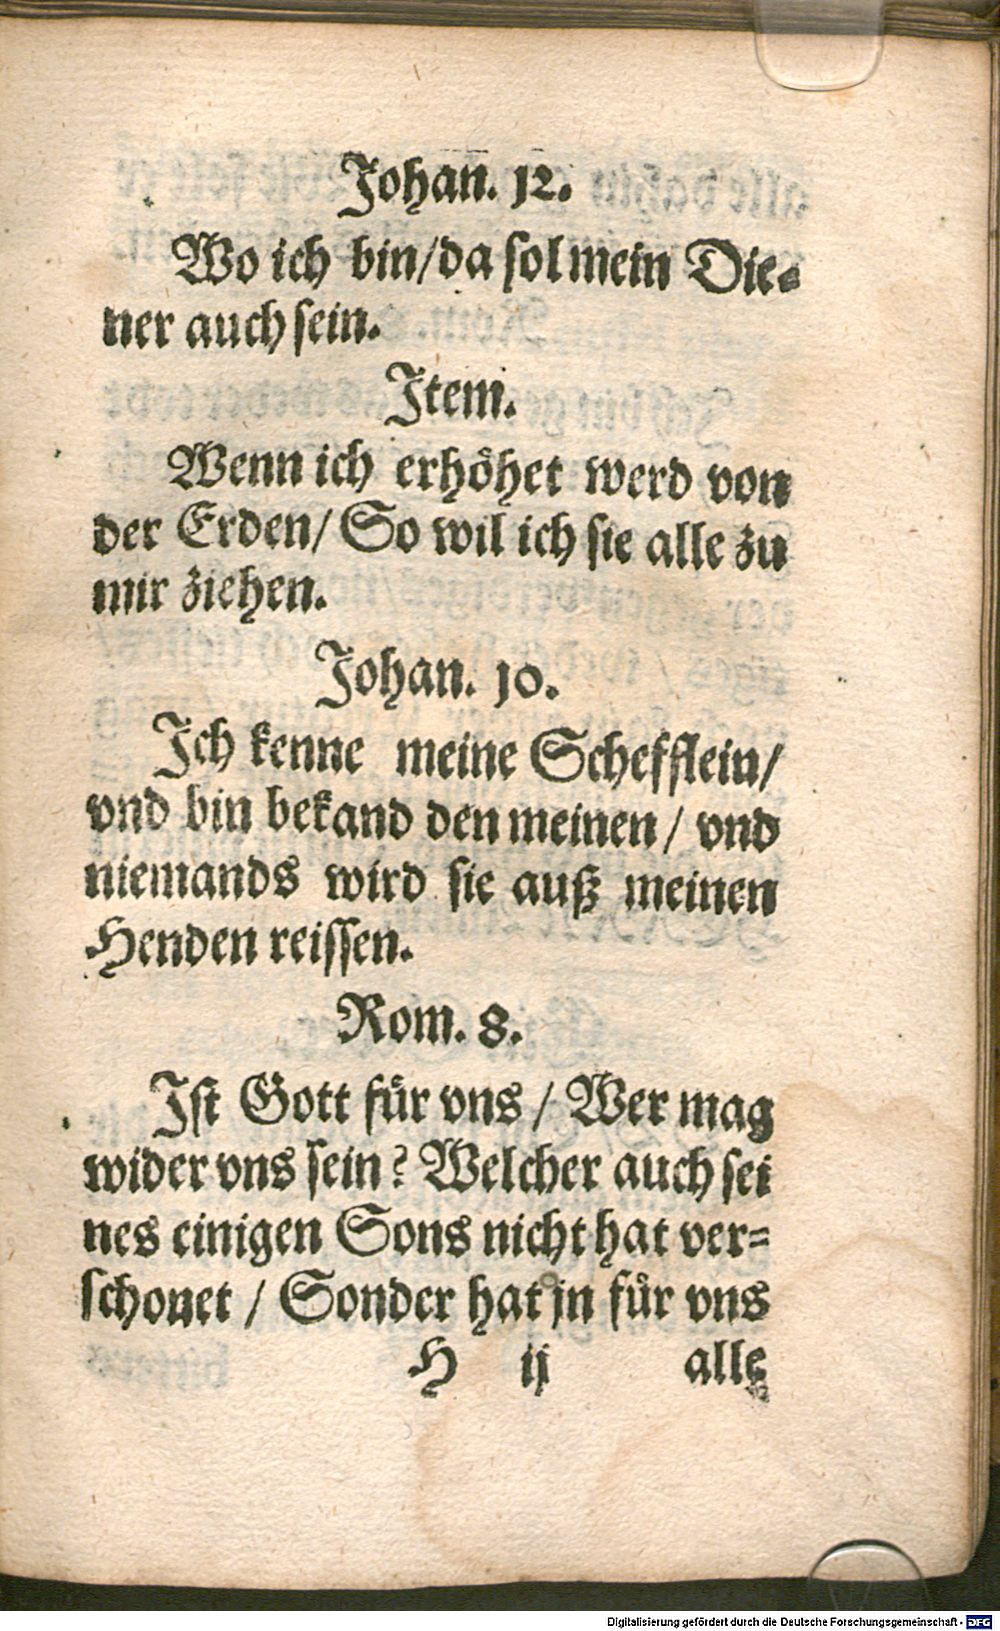 Johan. 12.
Wo ich bin/da sol mein Die-
ner auch sein.
Item.
Wenn ich erhöhet werd von
der Erden/ So wil ich sie alle zu
mir ziehen.
Johan. 10.
Ich kenne meine Schefflein/
vnd bin bekand den meinen / vnd
niemands wird sie auß meinen
Henden reissen.
Rom. 8.
Ist Gott für vns / Wer mag
wider vns sein? Welcher auch sei
nes einigen Sons nicht hat ver-
schonet / Sonder hat jn für vns
H ij alle
Digitalisierung gefördert durch die Deutsche Forschungsgemeinschaft - DFG